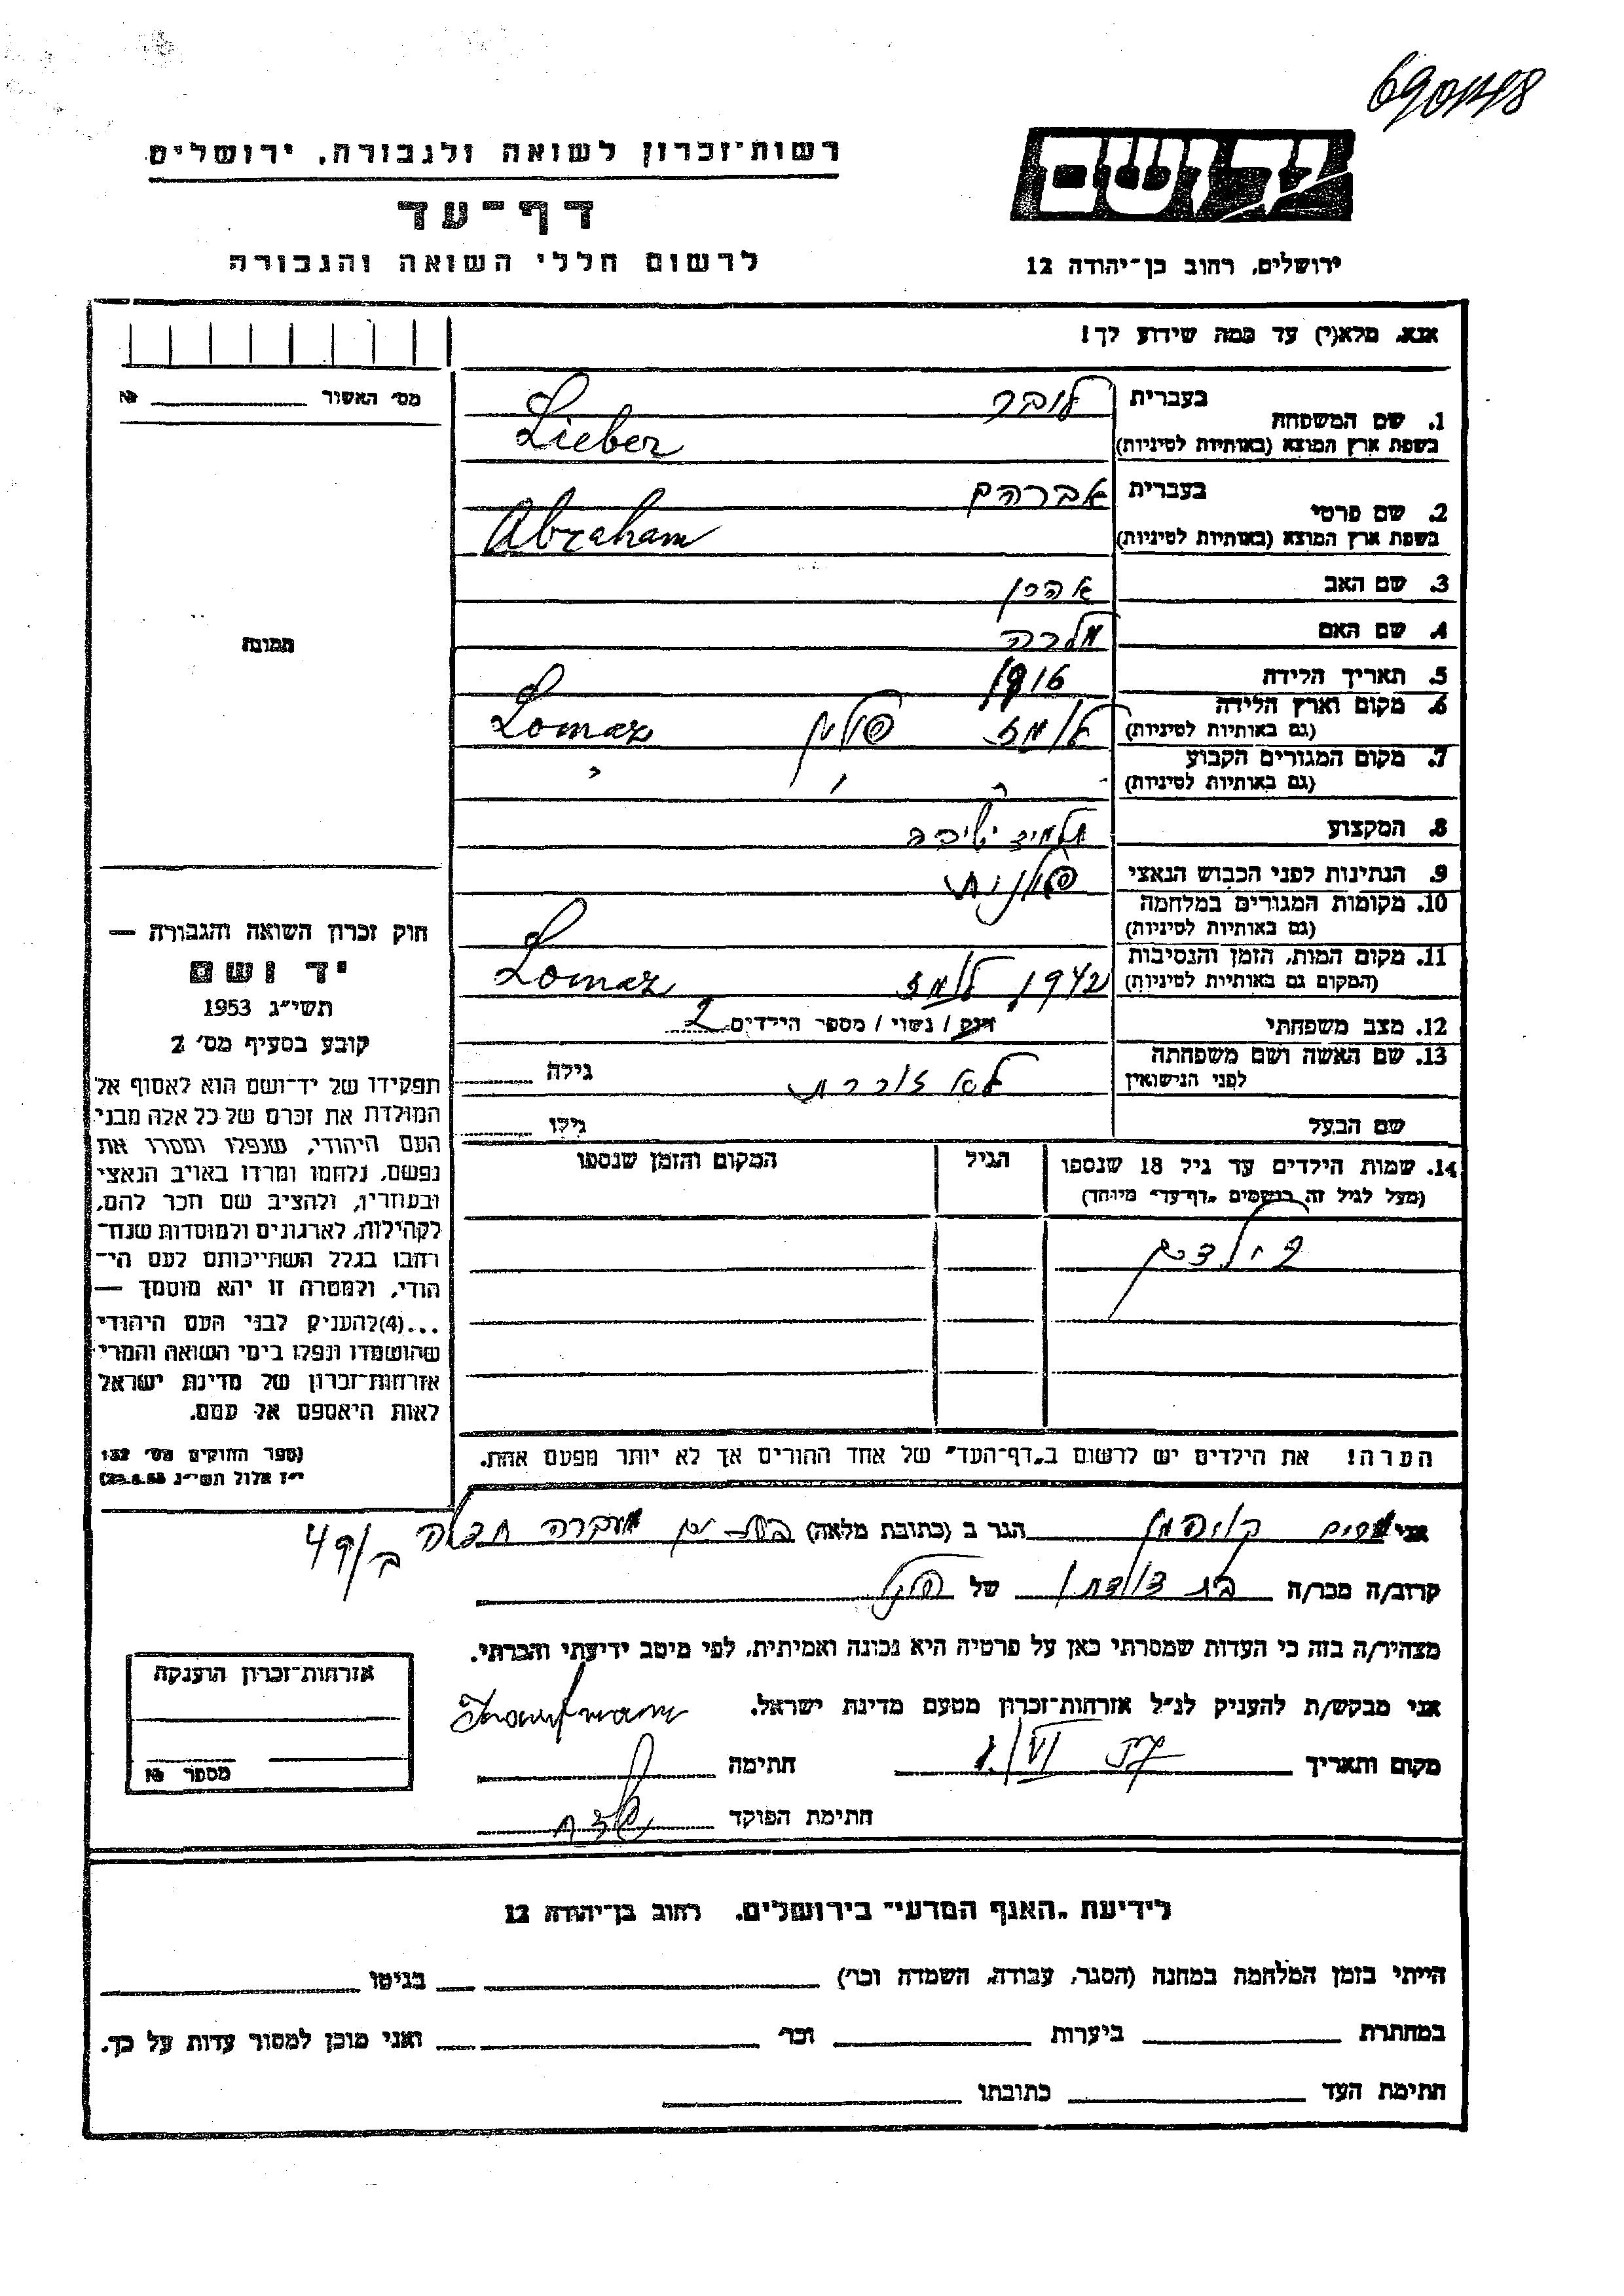 רשות־זכרון לשואה ולגבורה, ירושלים
דף־עד
לרשום חללי השואה והגבורה
יד ושם
ירושלים, רחוב בן־יהודה 12
אנא, מלא(י) עד כמה שידוע לך!
מס׳ האשור № 
1. שם המשפחה בעברית ליבר
בשפת ארץ המוצא (באותיות לטיניות) Lieber
2. שם פרטי בעברית אברהם
בשפת ארץ המוצא (באותיות לטיניות) Abraham
3. שם האב אהרן
4. שם האם מלכה
תמונה
5. תאריך הלידה 1916
6. מקום וארץ הלידה
(גם באותיות לטיניות) פולין Lomaz
7. מקום המגורים הקבוע
(גם באותיות לטיניות)
8. המקצוע תלמיד ישיבה
9. הנתינות לפני הכבוש הנאצי פולנית
10. מקומות המגורים במלחמה
(גם באותיות לטיניות)
11. מקום המות, הזמן והנסיבות
(המקום גם באותיות לטיניות) 1942 Lomaz
12. מצב משפחתי רוק / נשוי / מספר הילדים 2
13. שם האשה ושם משפחתה
לפני הנישואין לא זוכרת גילה
שם הבעל גילו
14. שמות הילדים עד גיל 18 שנספו הגיל המקום והזמן שנספו
(מעל לגיל זה רושמים „דף־עד״ מיוחד)
2 ילדים
הערה! את הילדים יש לרשום ב„דף־העד״ של אחד ההורים אך לא יותר מפעם אחת.
חוק זכרון השואה והגבורה —
יד ושם
תשי״ג 1953
קובע בסעיף מס׳ 2
תפקידו של יד־ושם הוא לאסוף אל
המולדת את זכרם של כל אלה מבני
העם היהודי, שנפלו ומסרו את
נפשם, נלחמו ומרדו באויב הנאצי
ובעוזריו, ולהציב שם וזכר להם,
לקהילות, לארגונים ולמוסדות שנח־
רבו בגלל השתייכותם לעם הי־
הודי, ולמטרה זו יהא מוסמך —
...(4)להעניק לבני העם היהודי
שהושמדו ונפלו בימי השואה והמרי
אזרחות־זכרון של מדינת ישראל
לאות היאספם אל עמם.
(ספר החוקים מס׳ 132
י״ז אלול תשי״ג 28.8.53)
אני קויפמן הגר ב (כתובת מלאה) מעברה ב/49
קרוב/ה מכר/ה בת דודתו של הנ״ל
מצהיר/ה בזה כי העדות שמסרתי כאן על פרטיה היא נכונה ואמיתית, לפי מיטב ידיעתי והכרתי.
אני מבקש/ת להעניק לנ״ל אזרחות־זכרון מטעם מדינת ישראל.
מקום ותאריך חתימה
חתימת הפוקד
אזרחות־זכרון הוענקה
מספר №
לידיעת „האגף המדעי״ בירושלים, רחוב בן־יהודה 12
הייתי בזמן המלחמה במחנה (הסגר, עבודה, השמדה וכו׳) בגיטו
במחתרת ביערות וכו׳ ואני מוכן למסור עדות על כך.
חתימת העד כתובתו